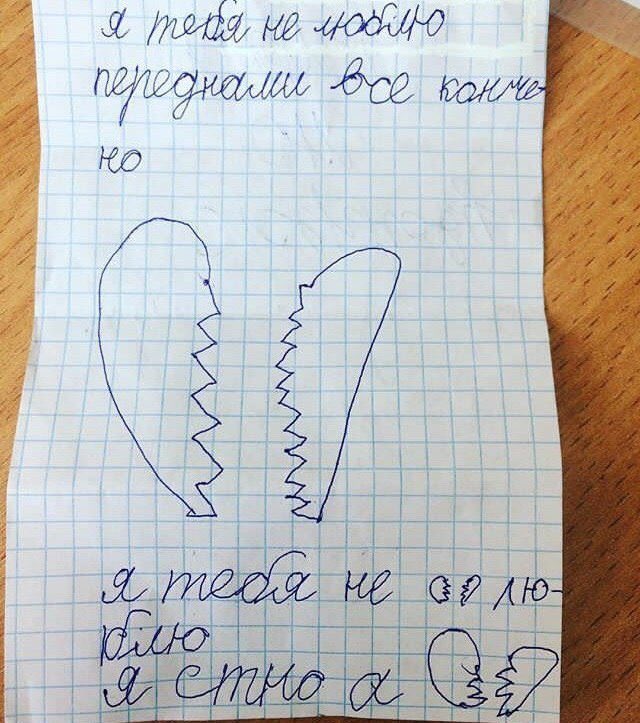 я тебя не люблю
переднами все конче-
но
я тебя не лю-
блю
я стно а